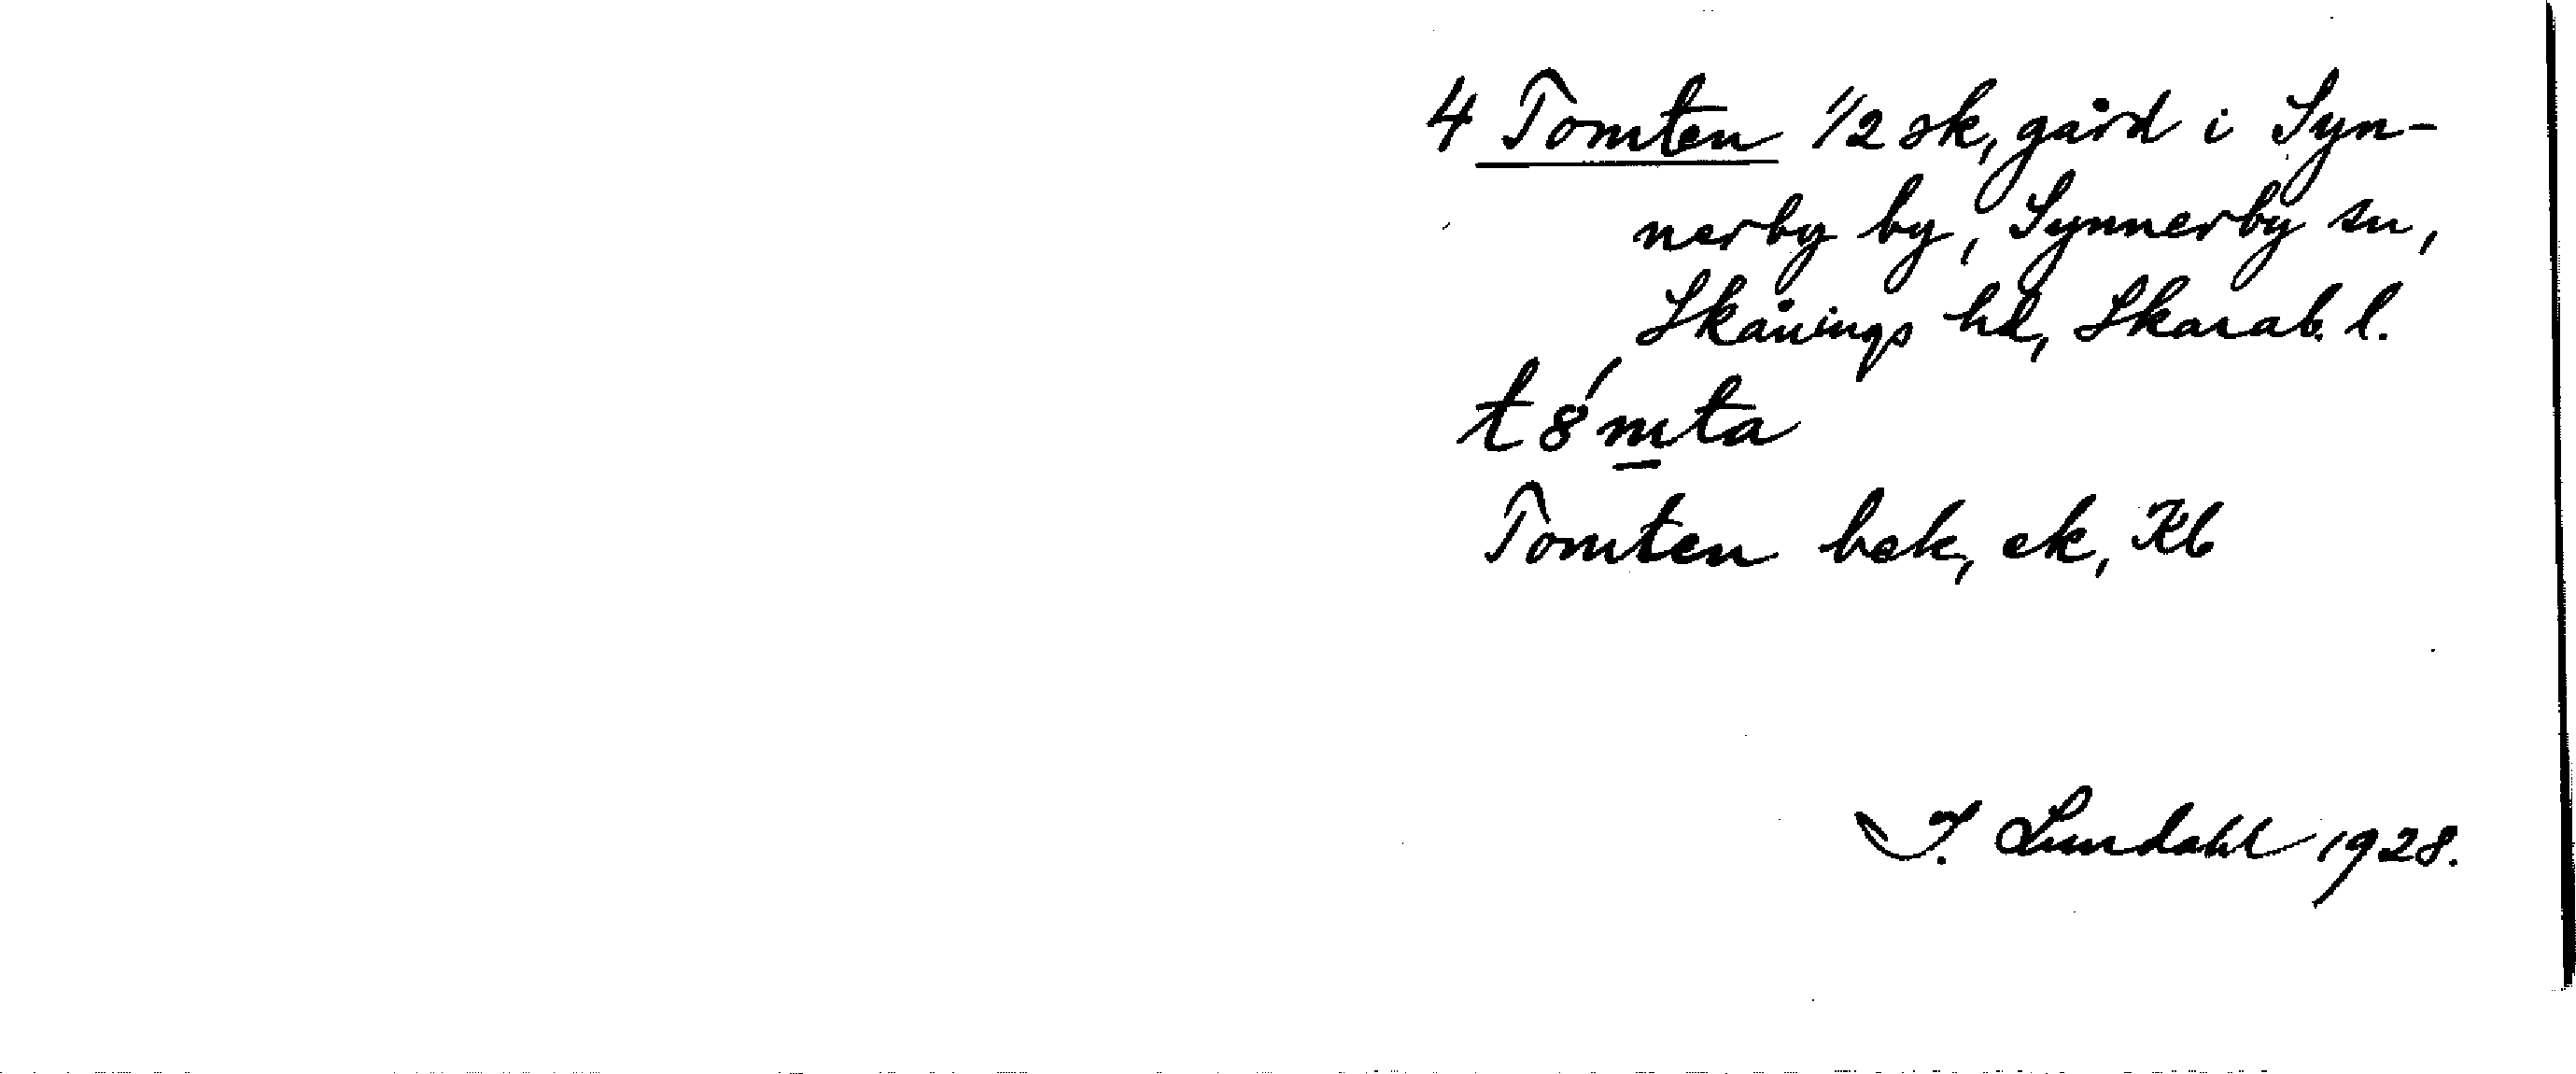 4 Tomten 1/2 sk, gård i Syn-
nerby by, Synnerby sn,
Skånings hd, Skarab. l.
t8́mta
Tomten bek, ek, Kb
I. Lundahl 1928.